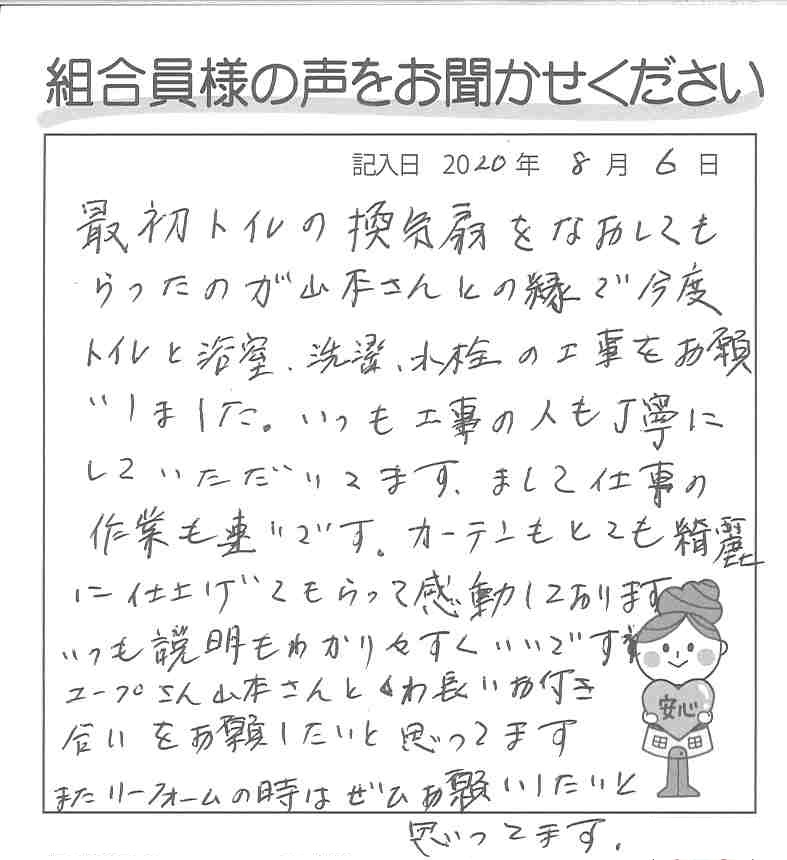 組合員様の声をお聞かせください
記入日 2020年 8月 6日
最初トイレの換気扇をなおしても
らったのが山本さんとの縁で今度
トイレと浴室、洗濯、水栓の工事をお願
いしました。いつも工事の人も丁寧に
していただいてます、まして仕事の
作業も速いです。カーテンもとても綺麗
に仕上げてもらって感動しております
いつも説明もわかりやすくいいです
コープさん山本さんと 長いお付き
合いをお願したいと思ってます
またリーフォームの時はぜひお願いしたいと
思ってます。
安心